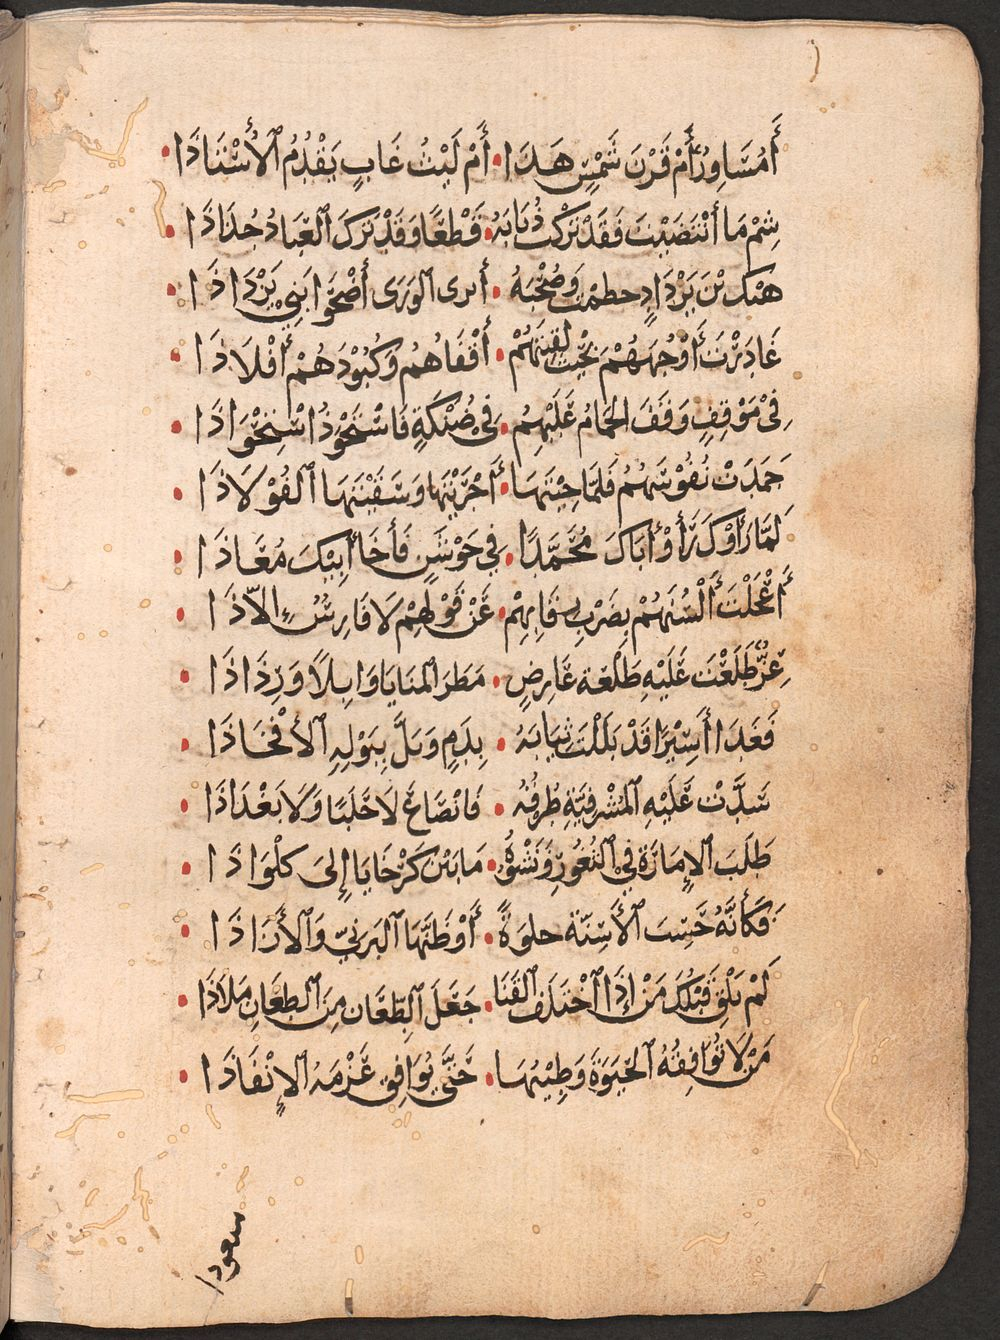 أَمُسَاوِرٌ أَمْ قَرْنَ شَمْسٍ هَذَا • أَمْ لَيْثُ غَابٍ يَقْدُمُ الأُسْتَاذَا •
شِمْ مَا أَنْتَضَيْتَ فَقَدْ تَرَكْتَ ذُبَابَهُ • قِطَعًا وَقَدْ تَرَكَ العِبَادُ جُذَاذَا •
هَبْكَ بْنَ يَزْدَادٍ حطمْتَ وَصُحْبَهُ • أَترى الوَرَى أَضْحَوا بَنِي يَزْدَاذَا •
غَادَرْتَ أَوْجُهَهُمْ بِحَيْثُ لَقِيتَهُمْ • أَقْفَاهُمُ وَكُبُوْدَهُمْ أَفْلَاذَا •
فِيْ مَوْقِفٍ وَقَفَ الحِمَامُ عَلَيْهِمُ • فِي ضَنْكَةٍ فَاسْتَحْوَذَ اسْتِحْوَاذَا •
جَمَدَتْ نُفُوْسُهُمُ فَلَمَّا جِئْتَهَا • أَجْرَيْتَهَا وَسَقَيْتَهَا الفُوْلَاذَا •
لَمَّا رَأَوْكَ رَأَوْا أَبَاكَ مُحَمَّدًا • فِي جَوْشَنٍ وَأَخَا أَبِيْكَ مُعَاذَا •
أَعْجَلْتَ أَلْسُنَهُمْ بِضَرْبِ رِقَابِهِمْ • عَنْ قَوْلِهِمْ لَا فَارِسٌ إِلاَّ ذَا •
غِرٌّ طَلَعْتَ عَلَيْهِ طَلْعَة عَارِضٍ • مَطَرَ المَنَايَا وَابِلاً وَرِذَاذَا •
فَغَدَا أَسِيْرًا قَدْ بَلَلْتَ ثِيَابَهُ • بِدَمٍ وَبَلَّ بِبَوْلِهِ الأَفْخَاذَا •
سَدَّتْ عَلَيْهِ المَشْرَفِيَّةِ طُرقُهُ • فَانْصَاعَ لَا حَلَبًا وَلَا بَغْدَاذَا •
طَلَبَ الإِمَارَةَ فِي الثُغُوْرِ وَنَشْوُهُ • مَا بَيْنَ كَرْخَايَا إِلَى كَلْوَاذَا •
فَكَأَنَّهُ حَسِبَ الأَسِنّةَ حلوَةً • أَوْ ظَنَّهَا البَرْنِيّ وَالأَزَاذَا •
لَمْ يَلْقَ قَبْلَكَ مَنْ إِذَا اَخْتَلَفَ القَنَا • جَعَلَ الطِّعَان مِنَ الطِعَانِ مَلاَذَا •
مَنْ لَا تُوَافِقُهُ الحَيَوةُ وَطِيْبُهَا • حَتَّى يُوَافِقَ عَزْمَهُ الإِنْفَاذَا •